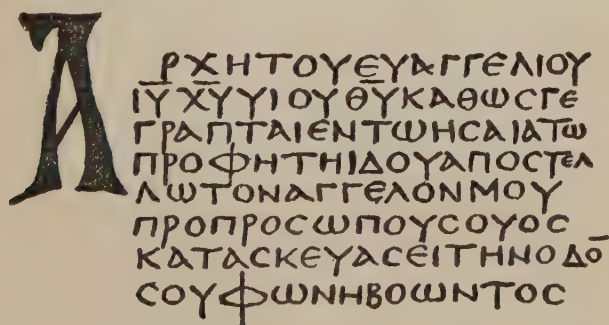 ΑΡΧΗΤΟΥΕΥΑΓΓΕΛΙΟΥ
ΙΥ̅ΧΥ̅ΥΙΟΥΘΥ̅ΚΑΘΩϹΓΕ
ΓΡΑΠΤΑΙΕΝΤΩΗϹΑΙΑΤΩ
ΠΡΟΦΗΤΗΙΔΟΥΑΠΟϹΤΕΛ
ΛΩΤΟΝΑΓΓΕΛΟΝΜΟΥ
ΠΡΟΠΡΟϹΩΠΟΥϹΟΥΟϹ
ΚΑΤΑϹΚΕΥΑϹΕΙΤΗΝΟΔΟ̅
ϹΟΥΦΩΝΗΒΟΩΝΤΟϹ